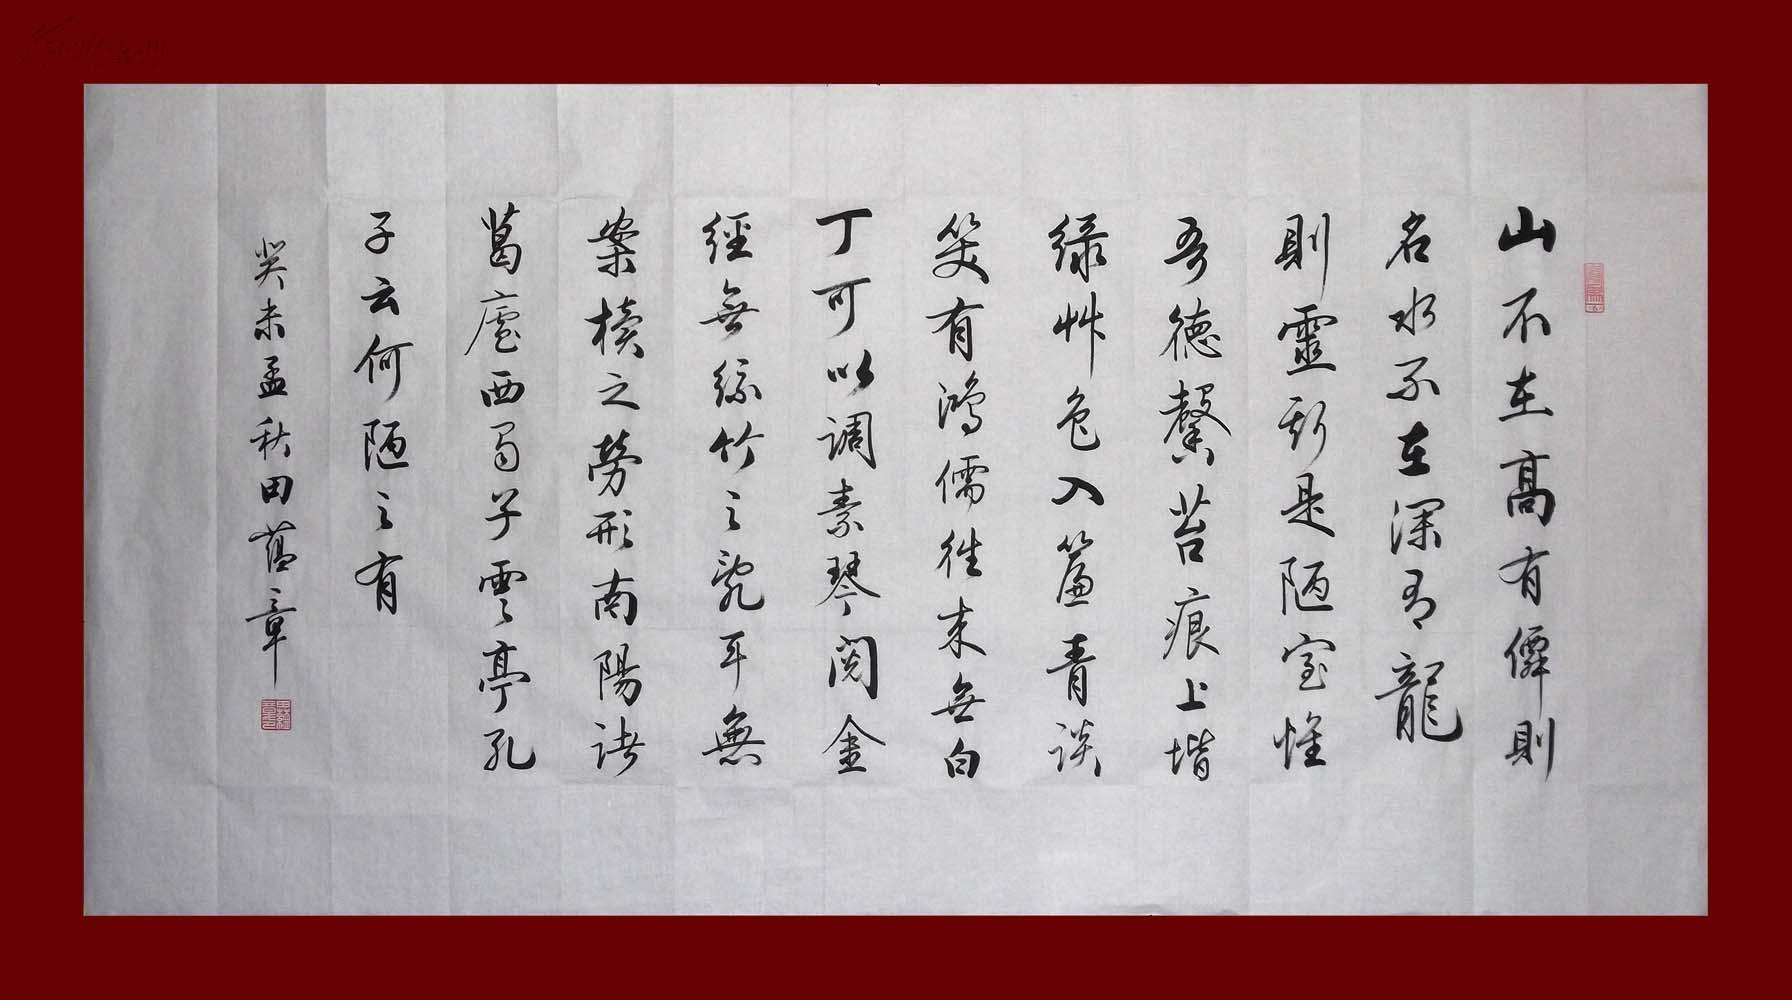 山不在高有僊則
名水不在深有龍
則靈斯是陋室惟
吾德馨苔痕上堦
緑艸色入簾青談
笑有鴻儒往来無白
丁可以調素琴閲金
經無絲竹之亂耳無
案牘之勞形南陽諸
葛廬西蜀子雲亭孔
子云何陋之有
癸未孟秋田蕴章